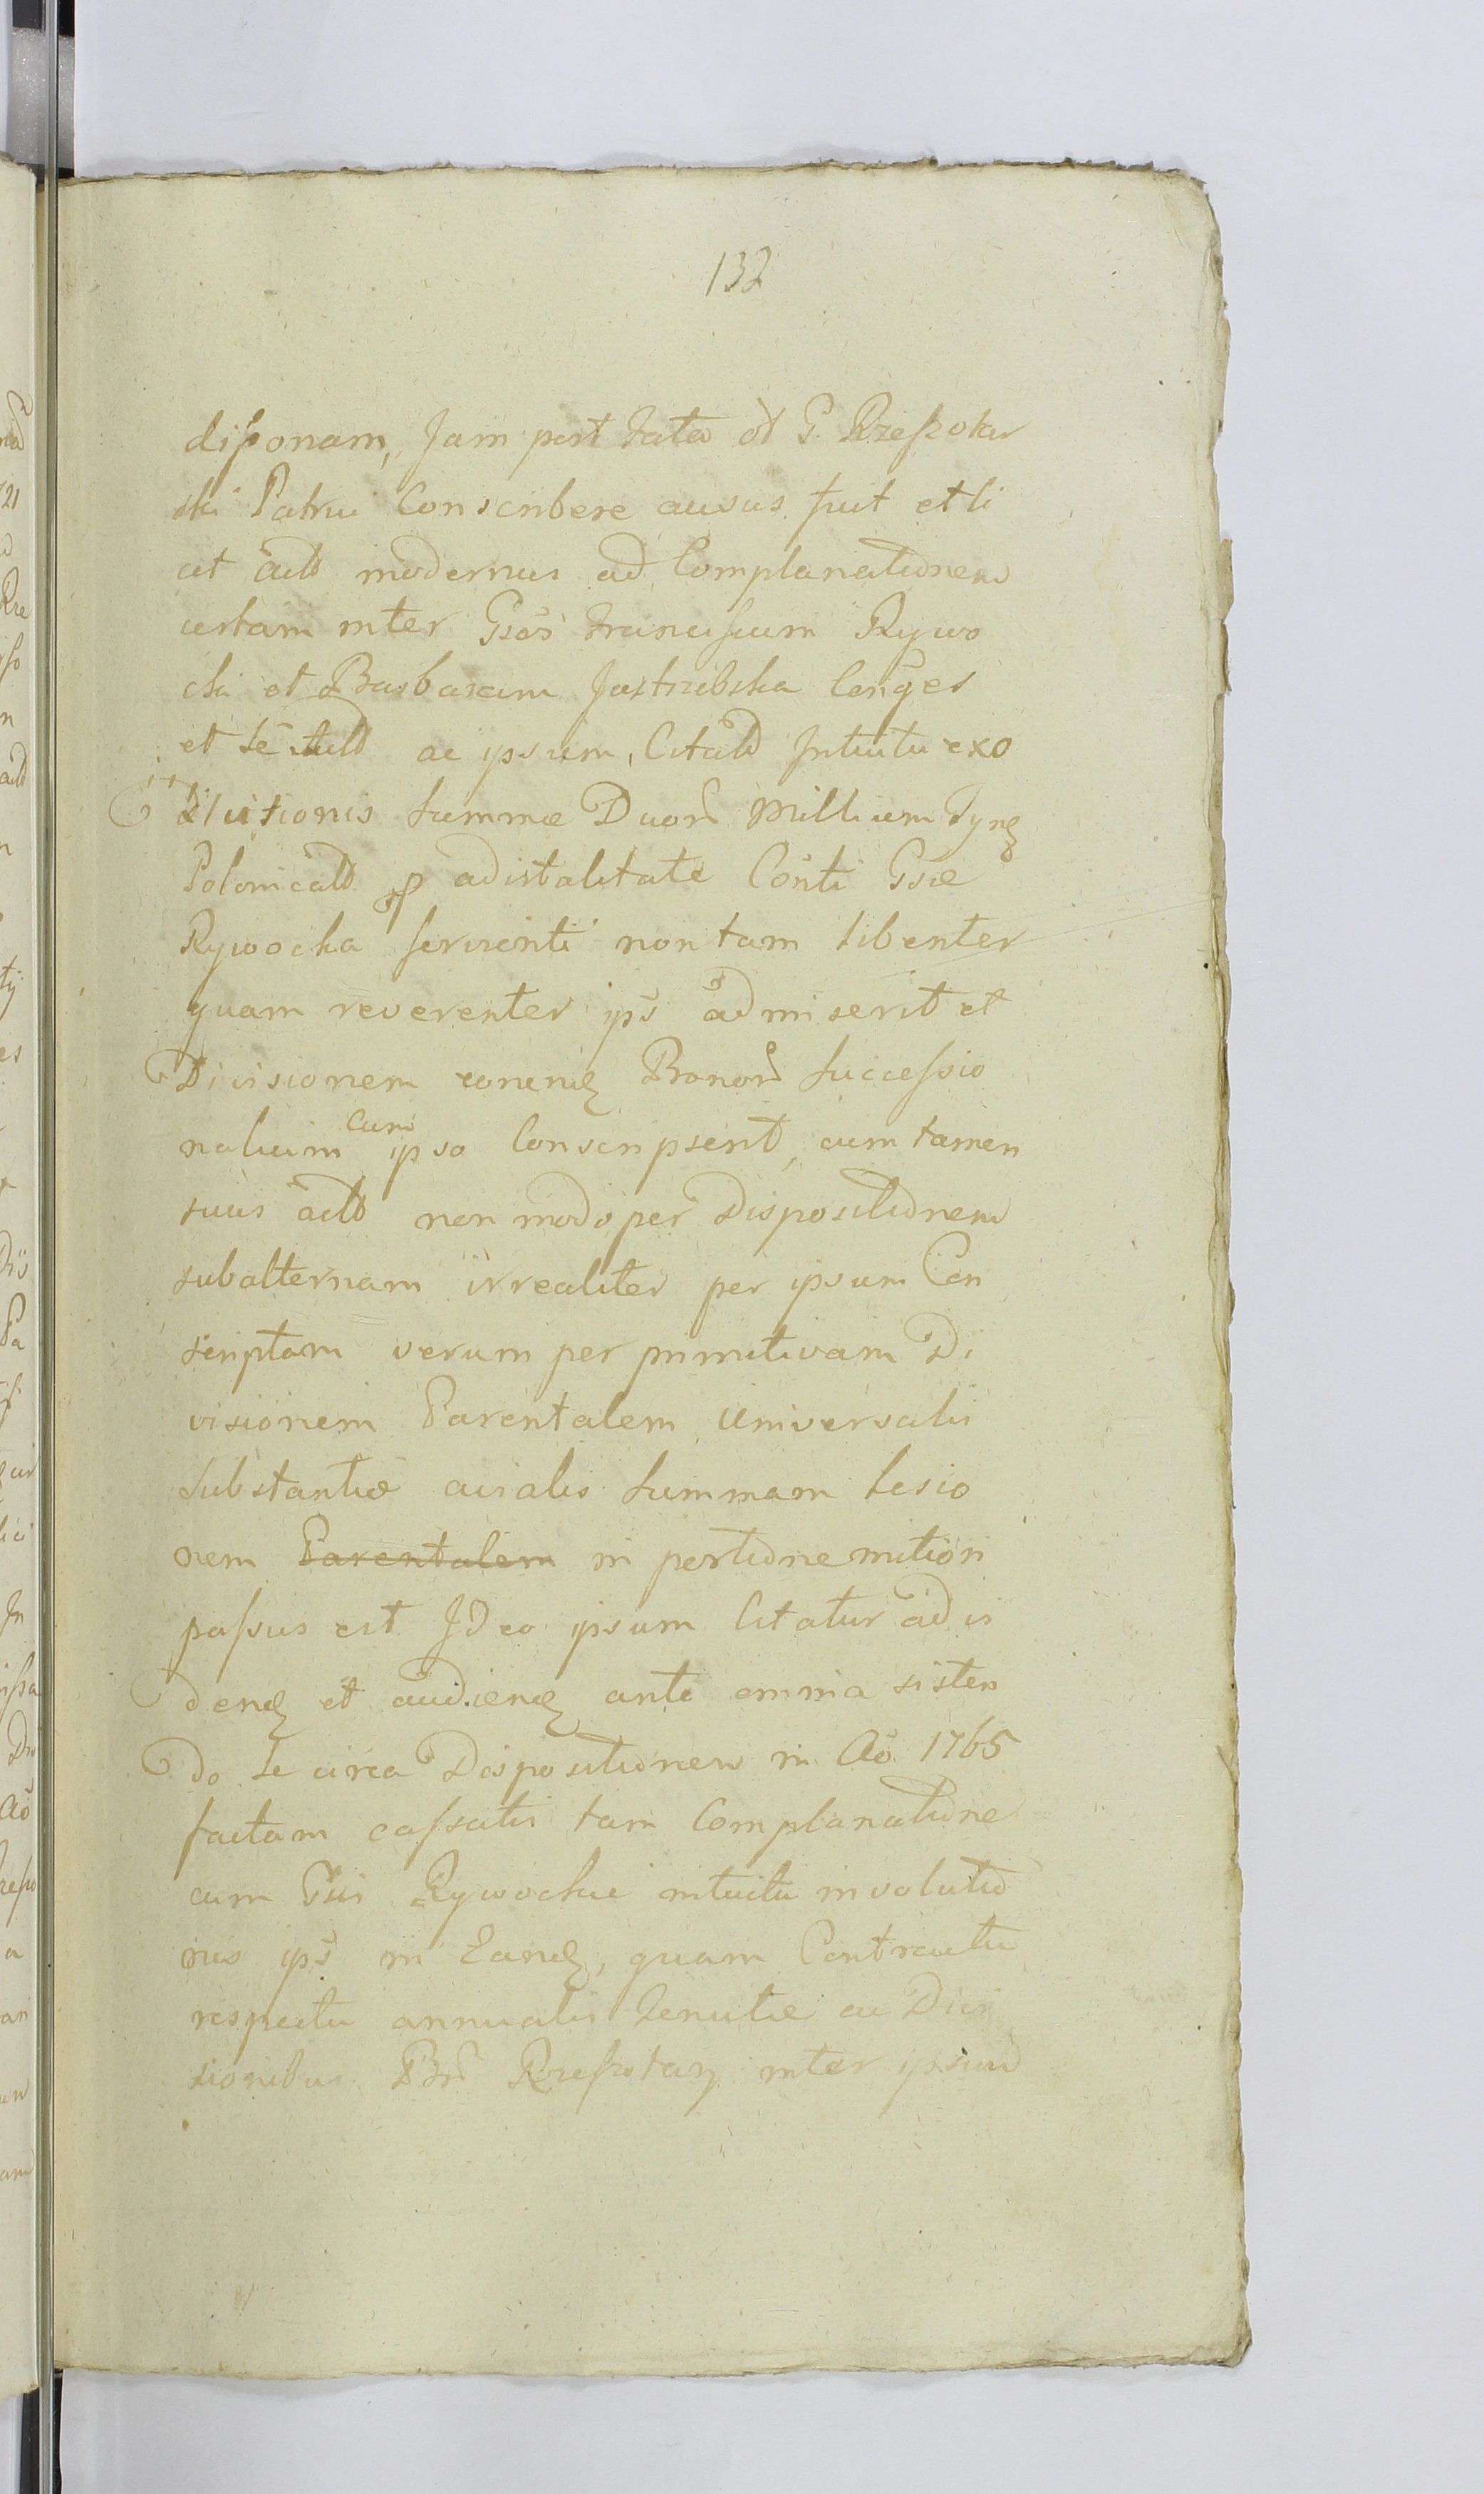 132
disponam, Jam post fata ol G. Rzeszotar
ski Patrui Conscribere ausus fuit et li
cet actto modernus ad Complanationem
certam inter Gsos Franciscum Rywo
cki et Barbaram Jastrzibska Conges
et se actto ac ipsum, Citato Intuitu exo
lutionis Summæ Duor Millium Tynf
Polonicalo advitalitate Conti Gsæ
Rywocka servienti non tam libenter
quam reverenter ips admiserit et
Divisionem Bonor Successio
nalium cum ipso Conscripserit, cum tamen
suus actto non modo per Dispositionem
subalternam irrealiter per ipsum Con
scriptam verum per primitivam Di
visionem Parentalem Universalis
Substantiæ avialis Summam lesio
nem Parentalem in portione
passus est Ideo ipsum Citatur ad vi
dend et audiend ante omnia sisten
do se circa Dispositionem in Ao 1765
factam cassatis tam Complanatione
cum Gsis Rywockie intuitu involutio
nis ips in Eand, quam Contractu
respectu annualis tenutæ ac Divi
sionibus Br Rzeszotary inter ipsum